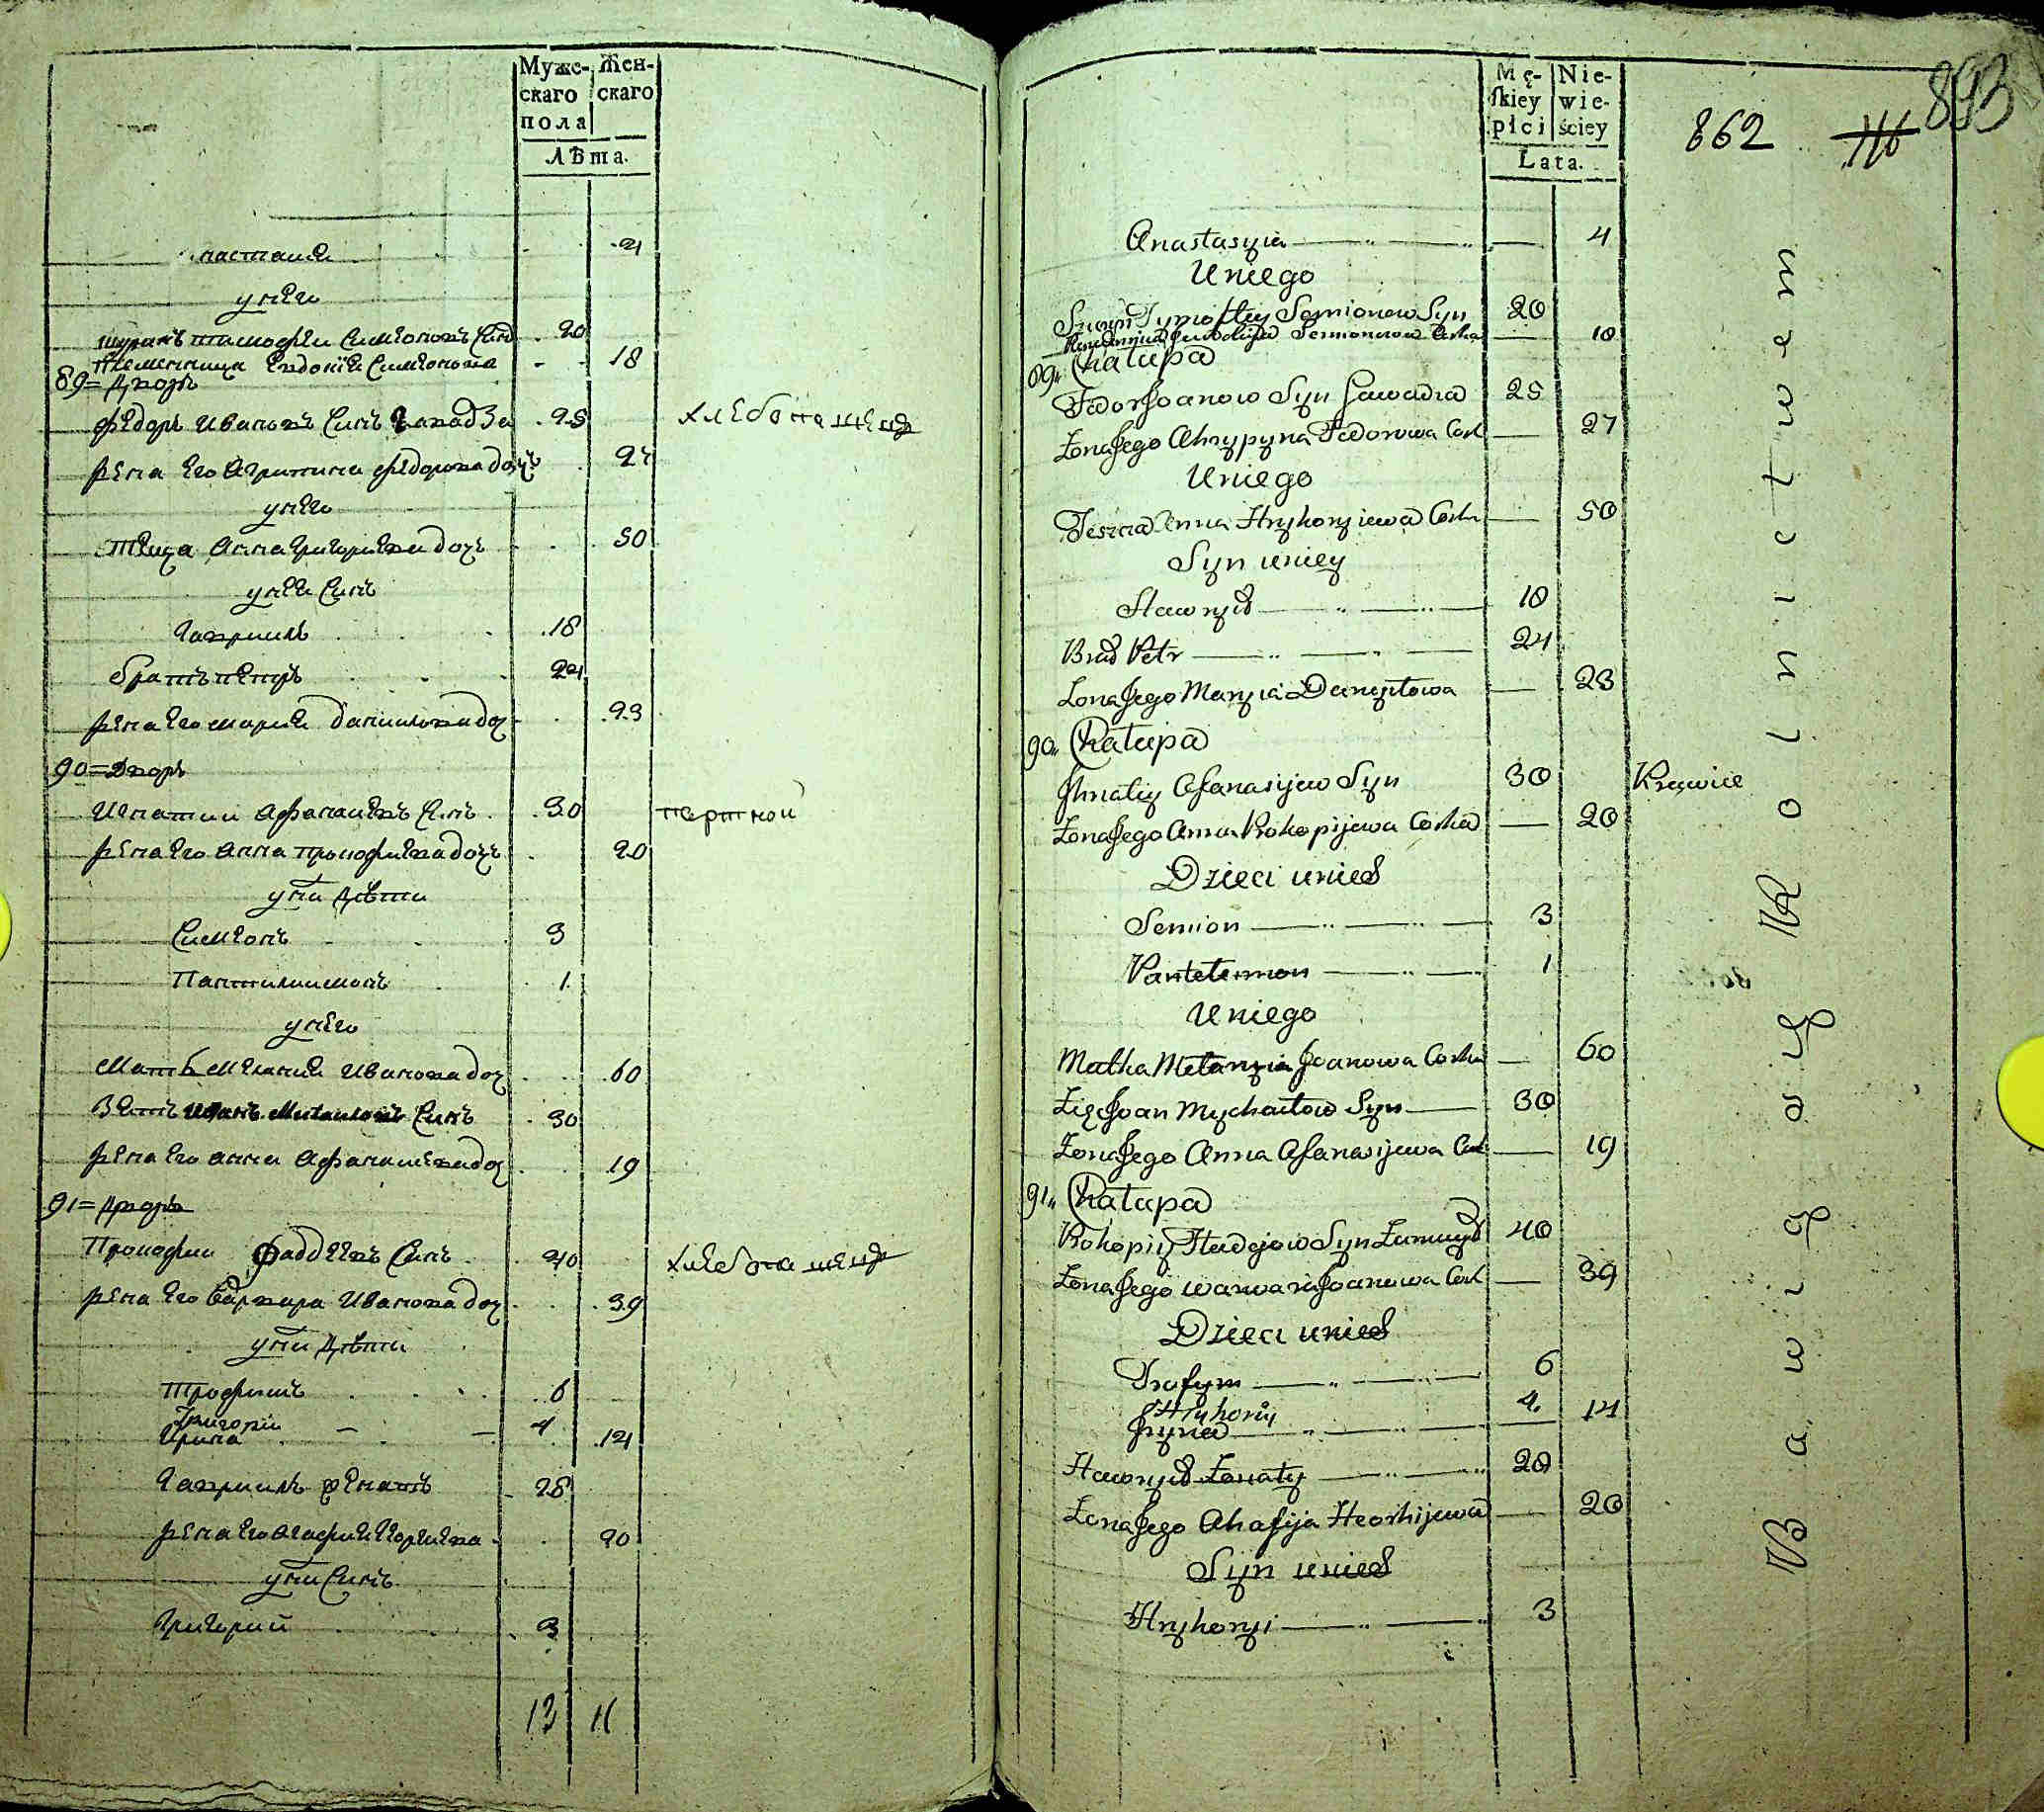 Муже- Жен-
скаго скаго
пола
Лѣта.
настасия 4
у него
шуринъ тимофеи симионовъ синъ 20
племенница Евдокия симионова 18
89= дворъ
федоръ ивановъ синъ 25 хлебопашецъ
жена его Агрипина федорова дочъ 27
у него
теща Анна григориева дочъ 50
у неи синъ
гавриилъ 18
братъ петръ 24
жена его мария даниилова доч 23
90= дворъ
игнатии афанасиевъ синъ 30 портнои
жена его анна прокофиева дочъ 20
у них дѣти
симионъ 3
Пантилиимонъ 1
у него
мать мелания иванова доч 60
зять иванъ михаиловъ синъ 30
жена его анна афанасиева доч 19
91= дворъ
Прокофии фаддеевъ синъ 40 хлебопашецъ
жена его варвара иванова доч 39
у них дѣти
трофимъ 6
Григории 4
ирина 14
гавриилъ женатъ 28
жена его агафия георгиева 20
у них синъ
григории 3
13 11
Mę- Nie-
skiey wie-
płci ściey
Lata.
862 116 893
Anastasyia 4
Uniego
Szuryn Tymoftey Semionow Syn 20
Semionowa Corka 18
89„ Chałupa
Fedor Joanow Syn Hawadza 25
Żona Jego Ahrypyna Fedorowa Cork 27
Uniego
Teszcza Anna Hryhoryiewa Cork 50
Syn uniey
Hawryił 18
Brat Petr 24
Żona Jego Maryia Danyłowa 23
90„ Chałupa
Jhnatiy Afanasijew Syn 30 Krawiec
Żona Jego Anna Prokopijewa Corka 20
Dzieci unich
Semion 3
Pantelemon 1
Uniego
Matka Melanyia Joanowa Corka 60
Zięć Joan Mychaiłow Syn 30
Żona Jego Anna Afanasijewa Cork 19
91„ Chałupa
Prokopiy Fladejow Syn 40
Żona Jego Warwara Joanowa Cork 39
Dzieci unich
Trofym 6
Hryhoriy 4.
Jryna 14
Hawryił Żonaty 28
Żona Jego Ahafija Heorhijewa 20
Syn unich
Hryhoryi 3
Bawią się Rolnictwem